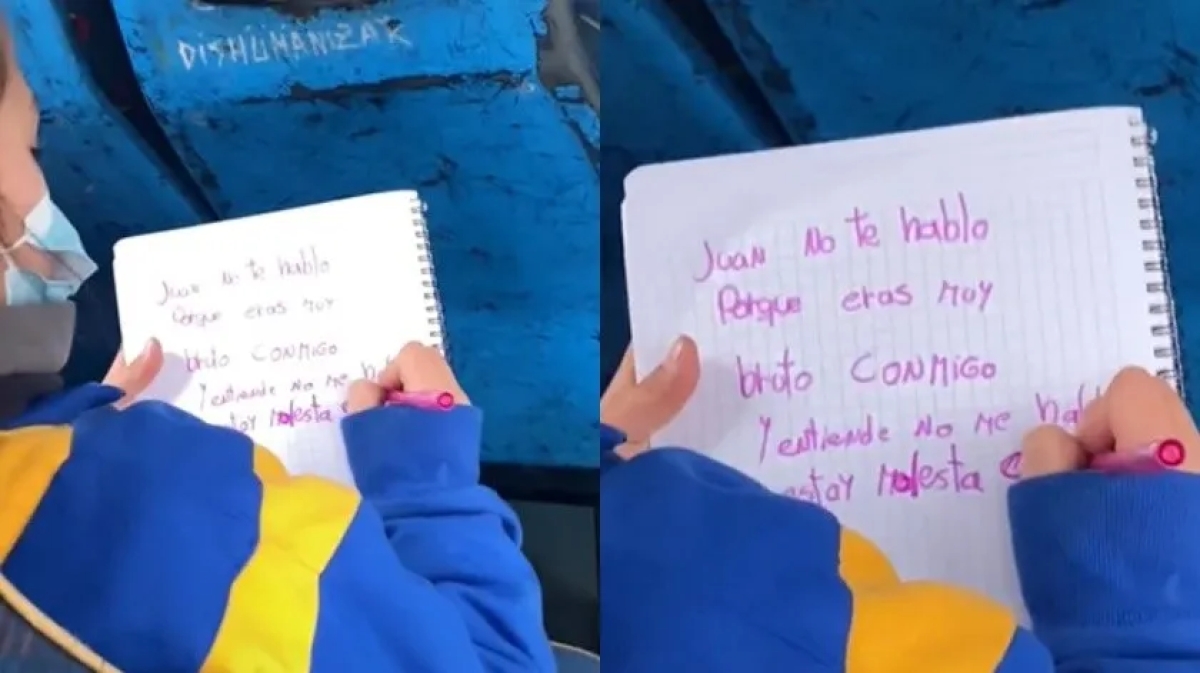 DISHÚMANIZAR
Juan No te hablo
Porque eras muy
bruto CONMIGO
Y entiende No me
estoy molesta
Juan No te hablo
Porque eras muy
bruto CONMIGO
Y entiende No me
estoy molesta